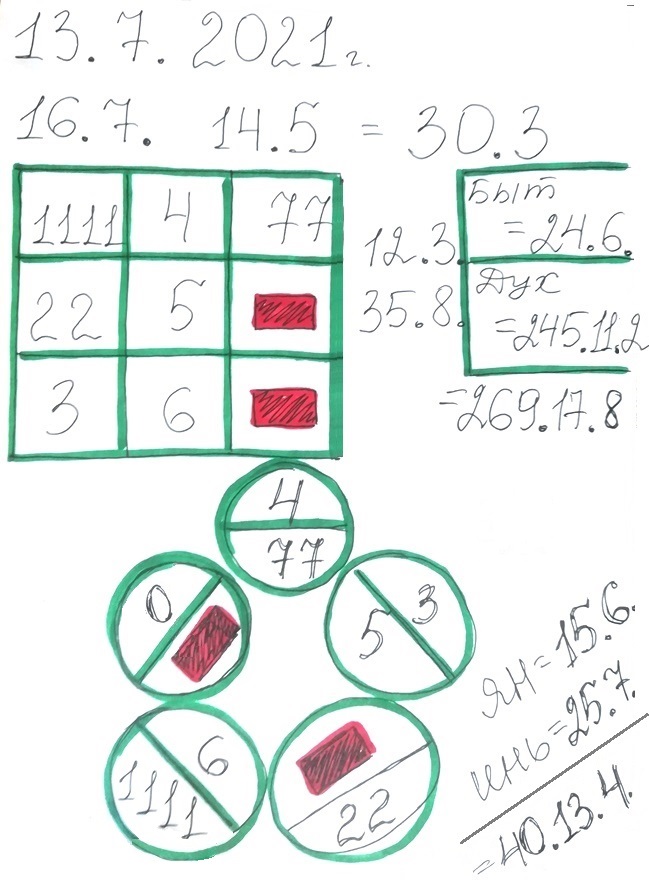 13.7. 2021г.
16.7. 14.5 = 30.3
1111 4 77
22 5
3 6
12.3.
35.8.
Быт
=24.6.
Дух
=245.11.2
=269.17.8
4
77
0
5 3
1111 6
22
ЯН=15.6.
ИНЬ=25.7.
=40.13.4.